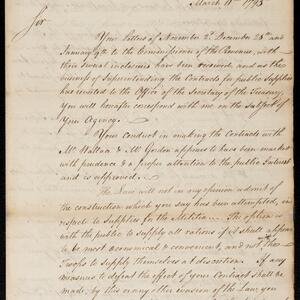 March 11th 1795
Sir
Your Letters of November 2d December 28th and
January 9th to the Commissioner of the Revenue, with
their several inclosures have been received, and as the
business of Superintending the Contracts for public Supplies
has reverted to the Office of the Secretary of the Treasury,
You will hereafter correspond with me on the subject of
Your Agency.
Your Conduct in making the Contracts with
Mr. Wallace & Mr. appears to have been marked
with prudence & a proper attention to the public Interest
and is approved.
The Law will not in my opinion admit of
the construction which you say has been attempted, in
respect to Supplies for the Militia. The option is
with the public to supply all rations if it shall appear
to be most economical & convenient, and not the
Troops to supply themselves at discretion. If any
measures to defeat the effect of your Contract shall be
made, by this or any other evasion of the Law, you